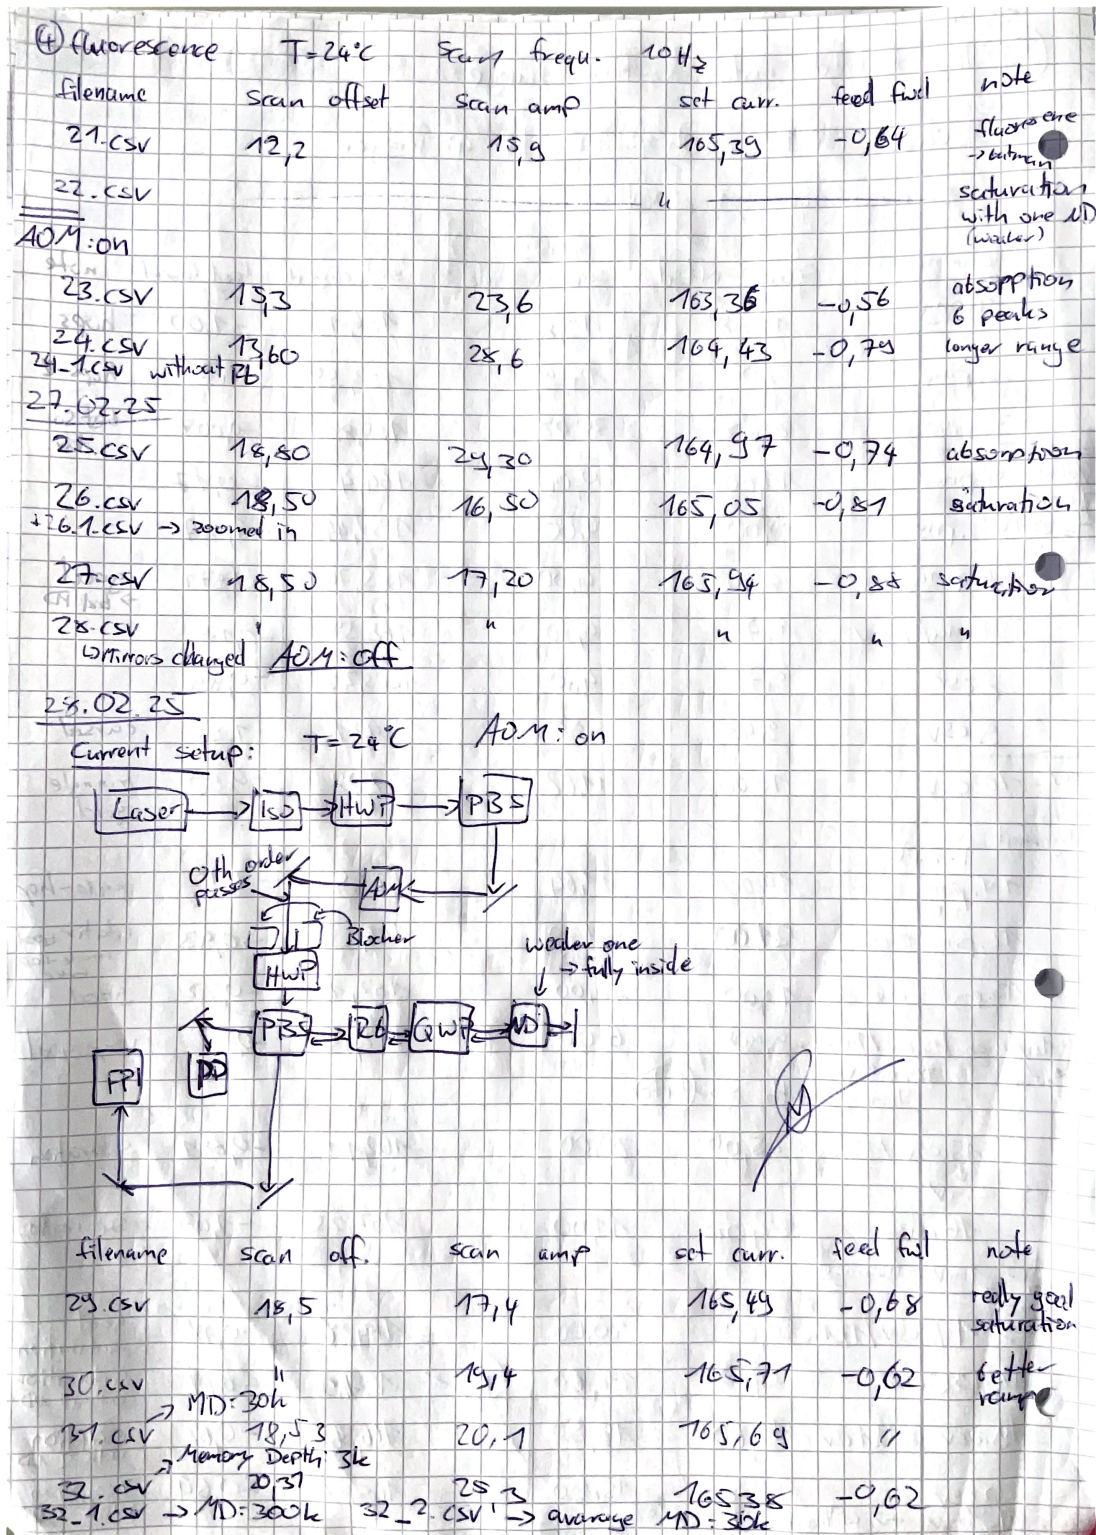 ④ fluorescence T=24°C Scan frequ. 10Hz
filename scan offset scan amp set curr. feed fwd note
21.csv 12,2 15,9 165,39 -0,64 fluorescene
22.csv " saturation
with one ND
(weaker)
AOM: on
23.csv 15,3 23,6 163,36 -0,56 absopption
6 peaks
24.csv 13,60 28,6 164,43 -0,79 longer range
24_1.csv without Rb
27.02.25
25.csv 18,80 29,30 164,97 -0,74 absorption
26.csv 18,50 16,50 165,05 -0,81 saturation
+26.1.csv → zoomed in
27.csv 18,50 17,20 165,94 -0,88 saturation
28.csv " " " " "
↳Mirrors changed AOM: off
28.02.25
Current setup: T=24°C AOM: on
Laser Iso HWP PBS
0th order
passes
AOM
Blocker
weaker one
→ fully inside
HWP
PBS Rb QWP ND
FPI PD
filename scan off. scan amp set curr. feed fwd note
29.csv 18,5 17,4 165,49 -0,68 really good
saturation
30.csv " 19,4 165,71 -0,62 better
range
→ MD: 30k
31.csv 18,53 20,1 165,69 "
→ Memory Depth: 3k
32.csv 20,31 25,3 165,38 -0,62
32_1.csv → MD: 300k 32_2.csv → avarage MD: 30k